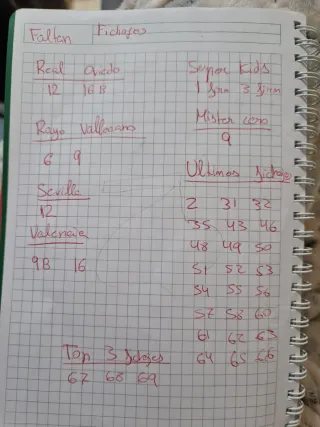 Faltan
Fichajes
Real Oviedo
12 16B
Rayo Vallecano
6 9
Sevilla
12
Valencia
9B 16
Super Kids
1 3
Mister cero
9
Ultimos fichajes
2 31 32
35 43 46
48 49 50
51 52 53
54 55 56
57 58 60
61 62 63
64 65 66
Top 3
67 68 69